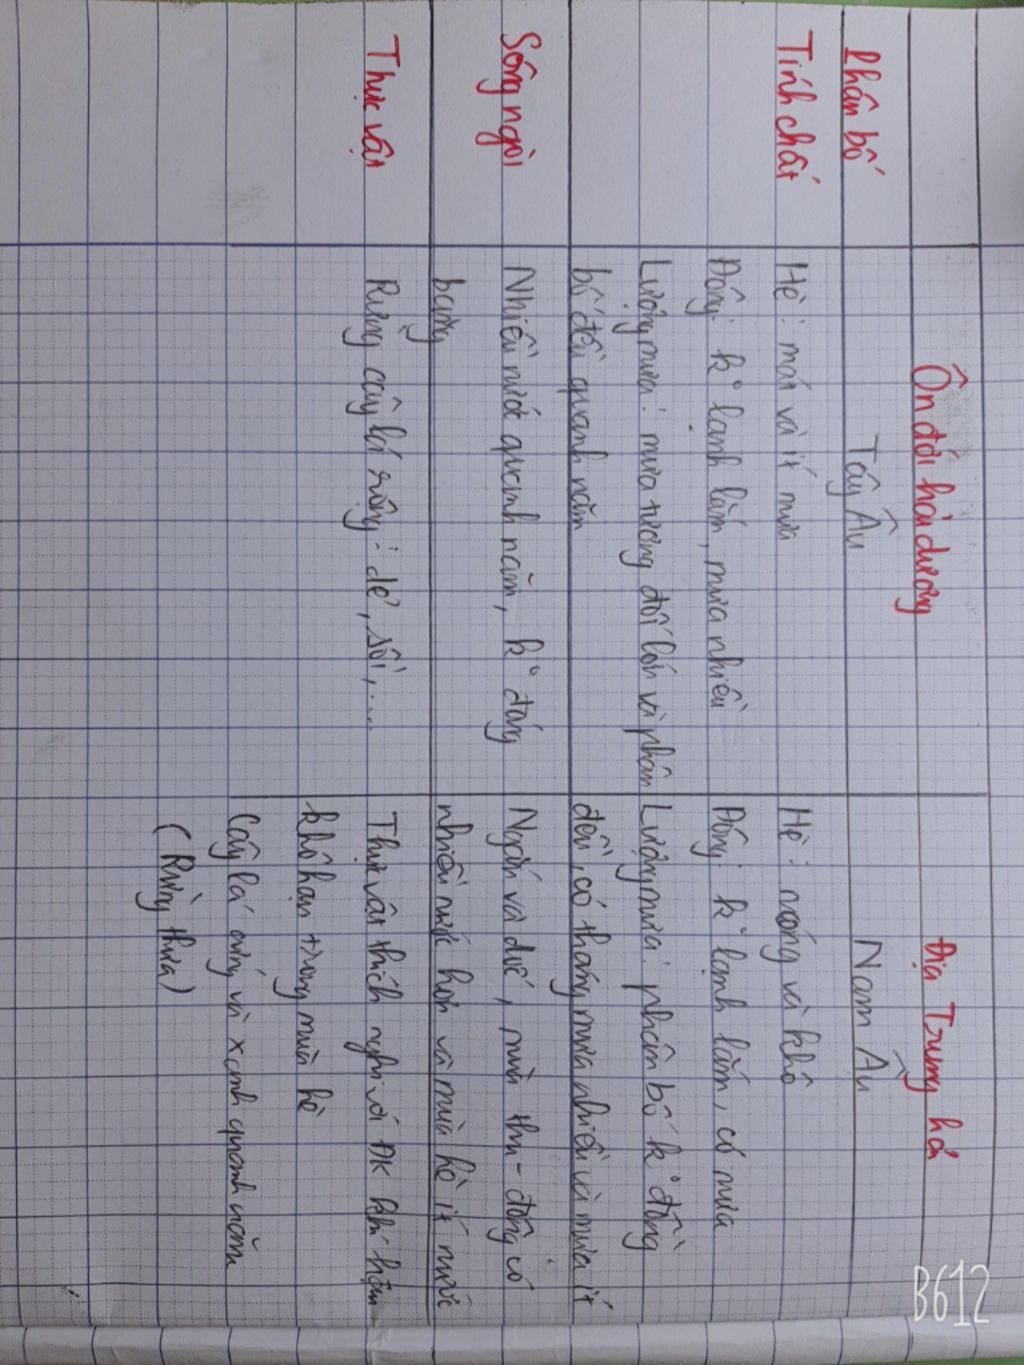 Ôn đới hải dương
Địa Trung hải
Phân bố
Tây Âu
Nam Âu
Tính chất
Hè: mát và ít mưa
Đông: k° lạnh lắm, mưa nhiều
Lượng mưa: mưa tương đối lớn và phân
bố đều quanh năm
Hè: nóng và khô
Đông: k° lạnh lắm, có mưa
Lượng mưa: phân bố k° đồng
đều, có tháng mưa nhiều và mưa ít
Sông ngòi
Nhiều nước quanh năm, k° đóng
băng
Ngắn và dốc, mùa thu-đông có
nhiều nước hơn và mùa hè ít nước
Thực vật
Rừng cây lá rộng: dẻ, sồi,...
Thực vật thích nghi với ĐK khí hậu
khô hạn trong mùa hè
Cây lá cứng và xanh quanh năm
(Rừng thưa)
B612